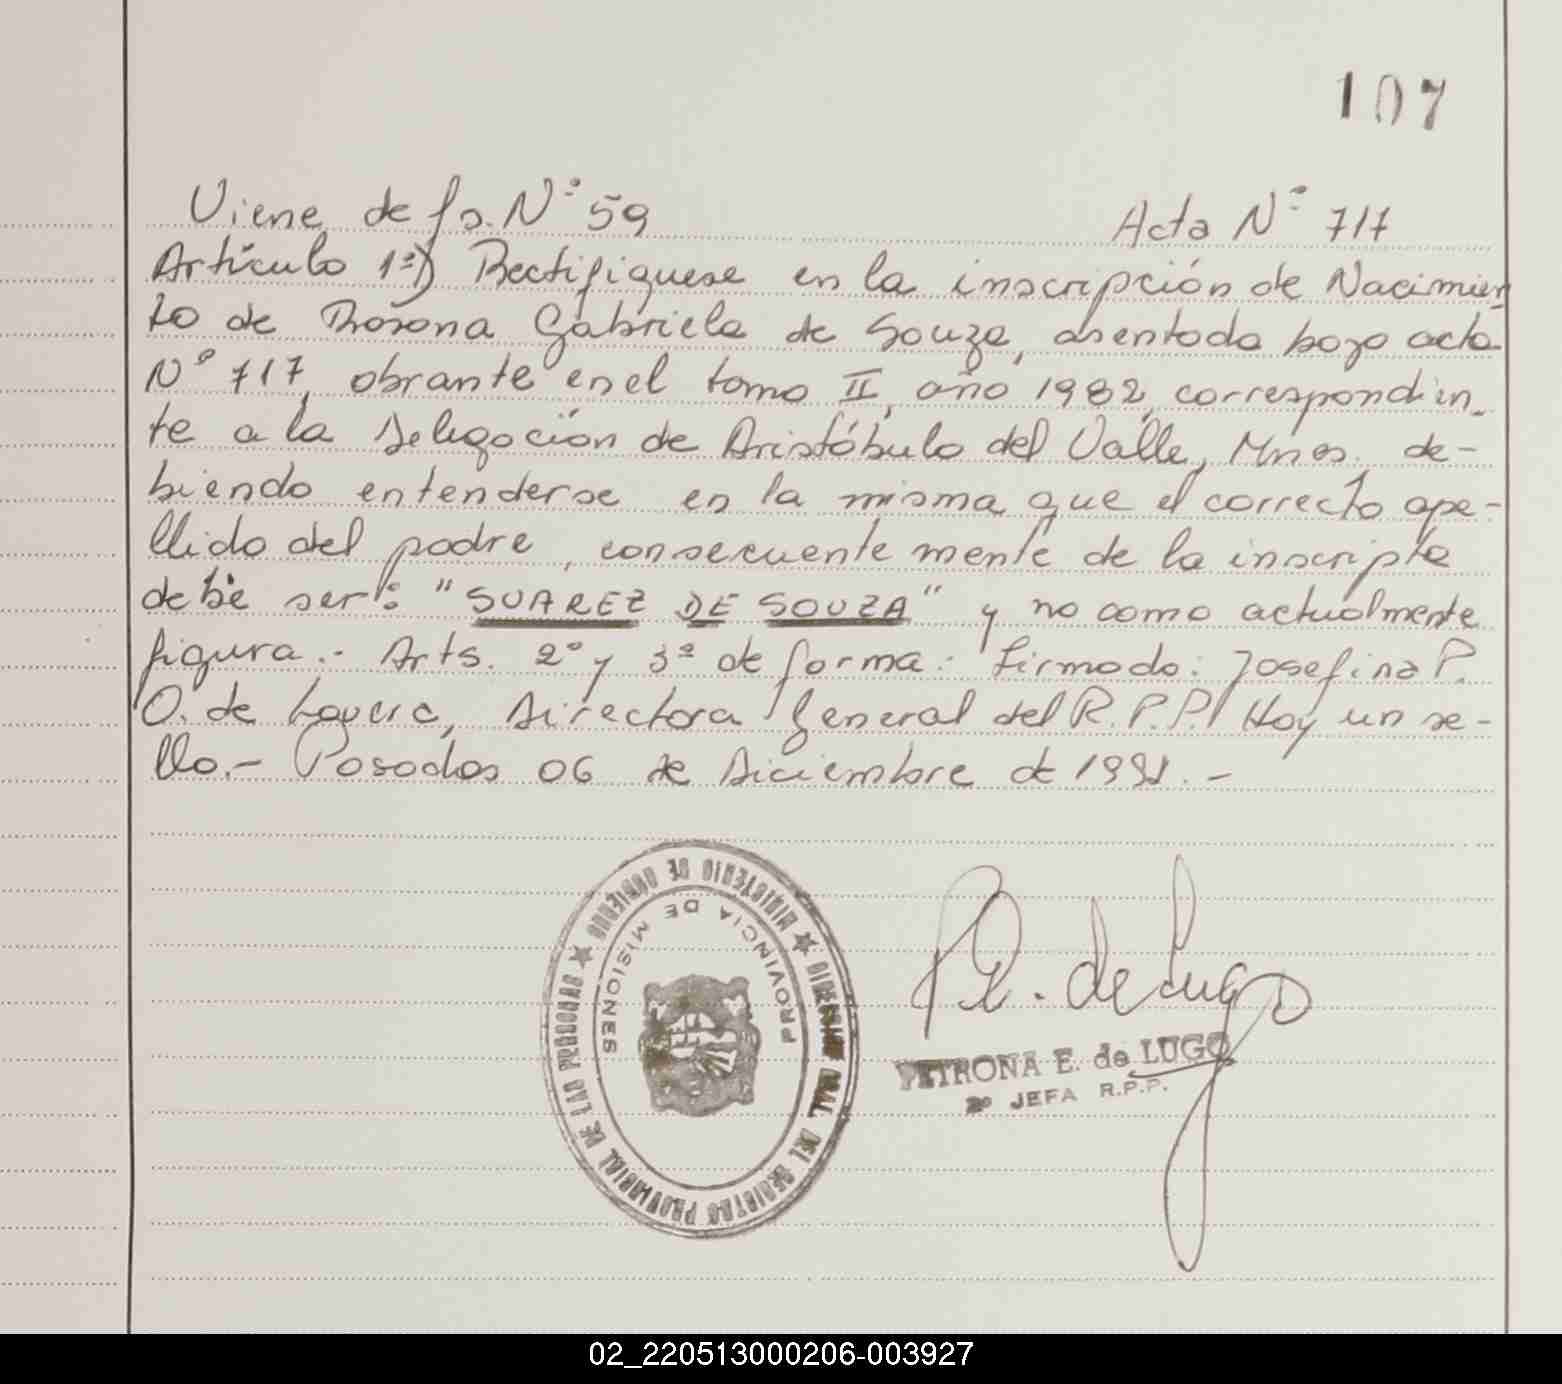 107
Viene de fs. Nº 59 Acta Nº 717
Artículo 1º) Rectifiquese en la inscripción de Nacimien
to de Rosana Gabriela de Souza, asentada bajo acta
Nº 717, obrante en el tomo II, año 1982, correspondien-
te a la Delegación de Aristóbulo del Valle, Mnes. de-
biendo entenderse en la misma que el correcto ape-
llido del padre, consecuentemente de la inscripta
debe ser: "SUAREZ DE SOUZA" y no como actualmente
figura.- Arts. 2º y 3º de forma. Firmado: Josefina P.
O. de, Directora General del R.P.P. Hay un se-
llo.- Posadas 06 de Diciembre de 1991.-
MINISTERIO DE GOBIERNO
PROVINCIA DE MISIONES
DIRECCION GRAL. DEL REGISTRO PROVINCIAL DE LAS PERSONAS
P E. de Lugo
PETRONA E. de LUGO
2º JEFA R.P.P.
02_220513000206-003927